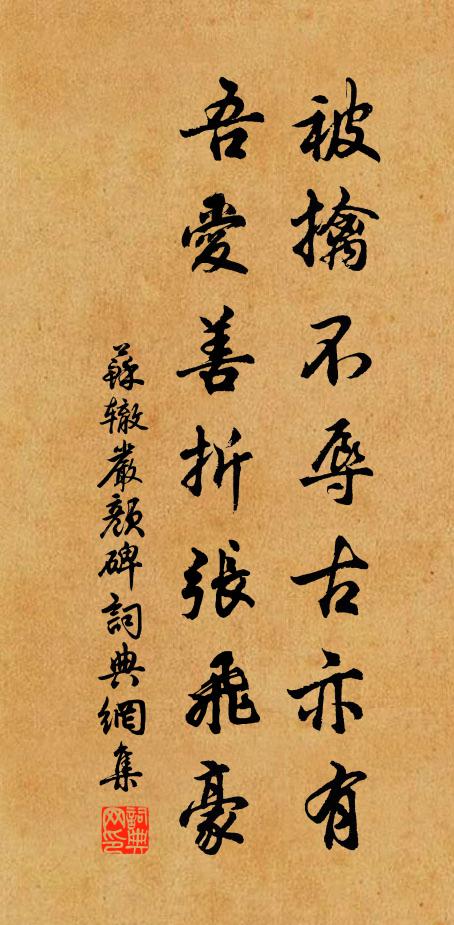 被擒不辱古亦有
吾愛善折張飛豪
蘇辙嚴顏碑詞典網集
詞典网印